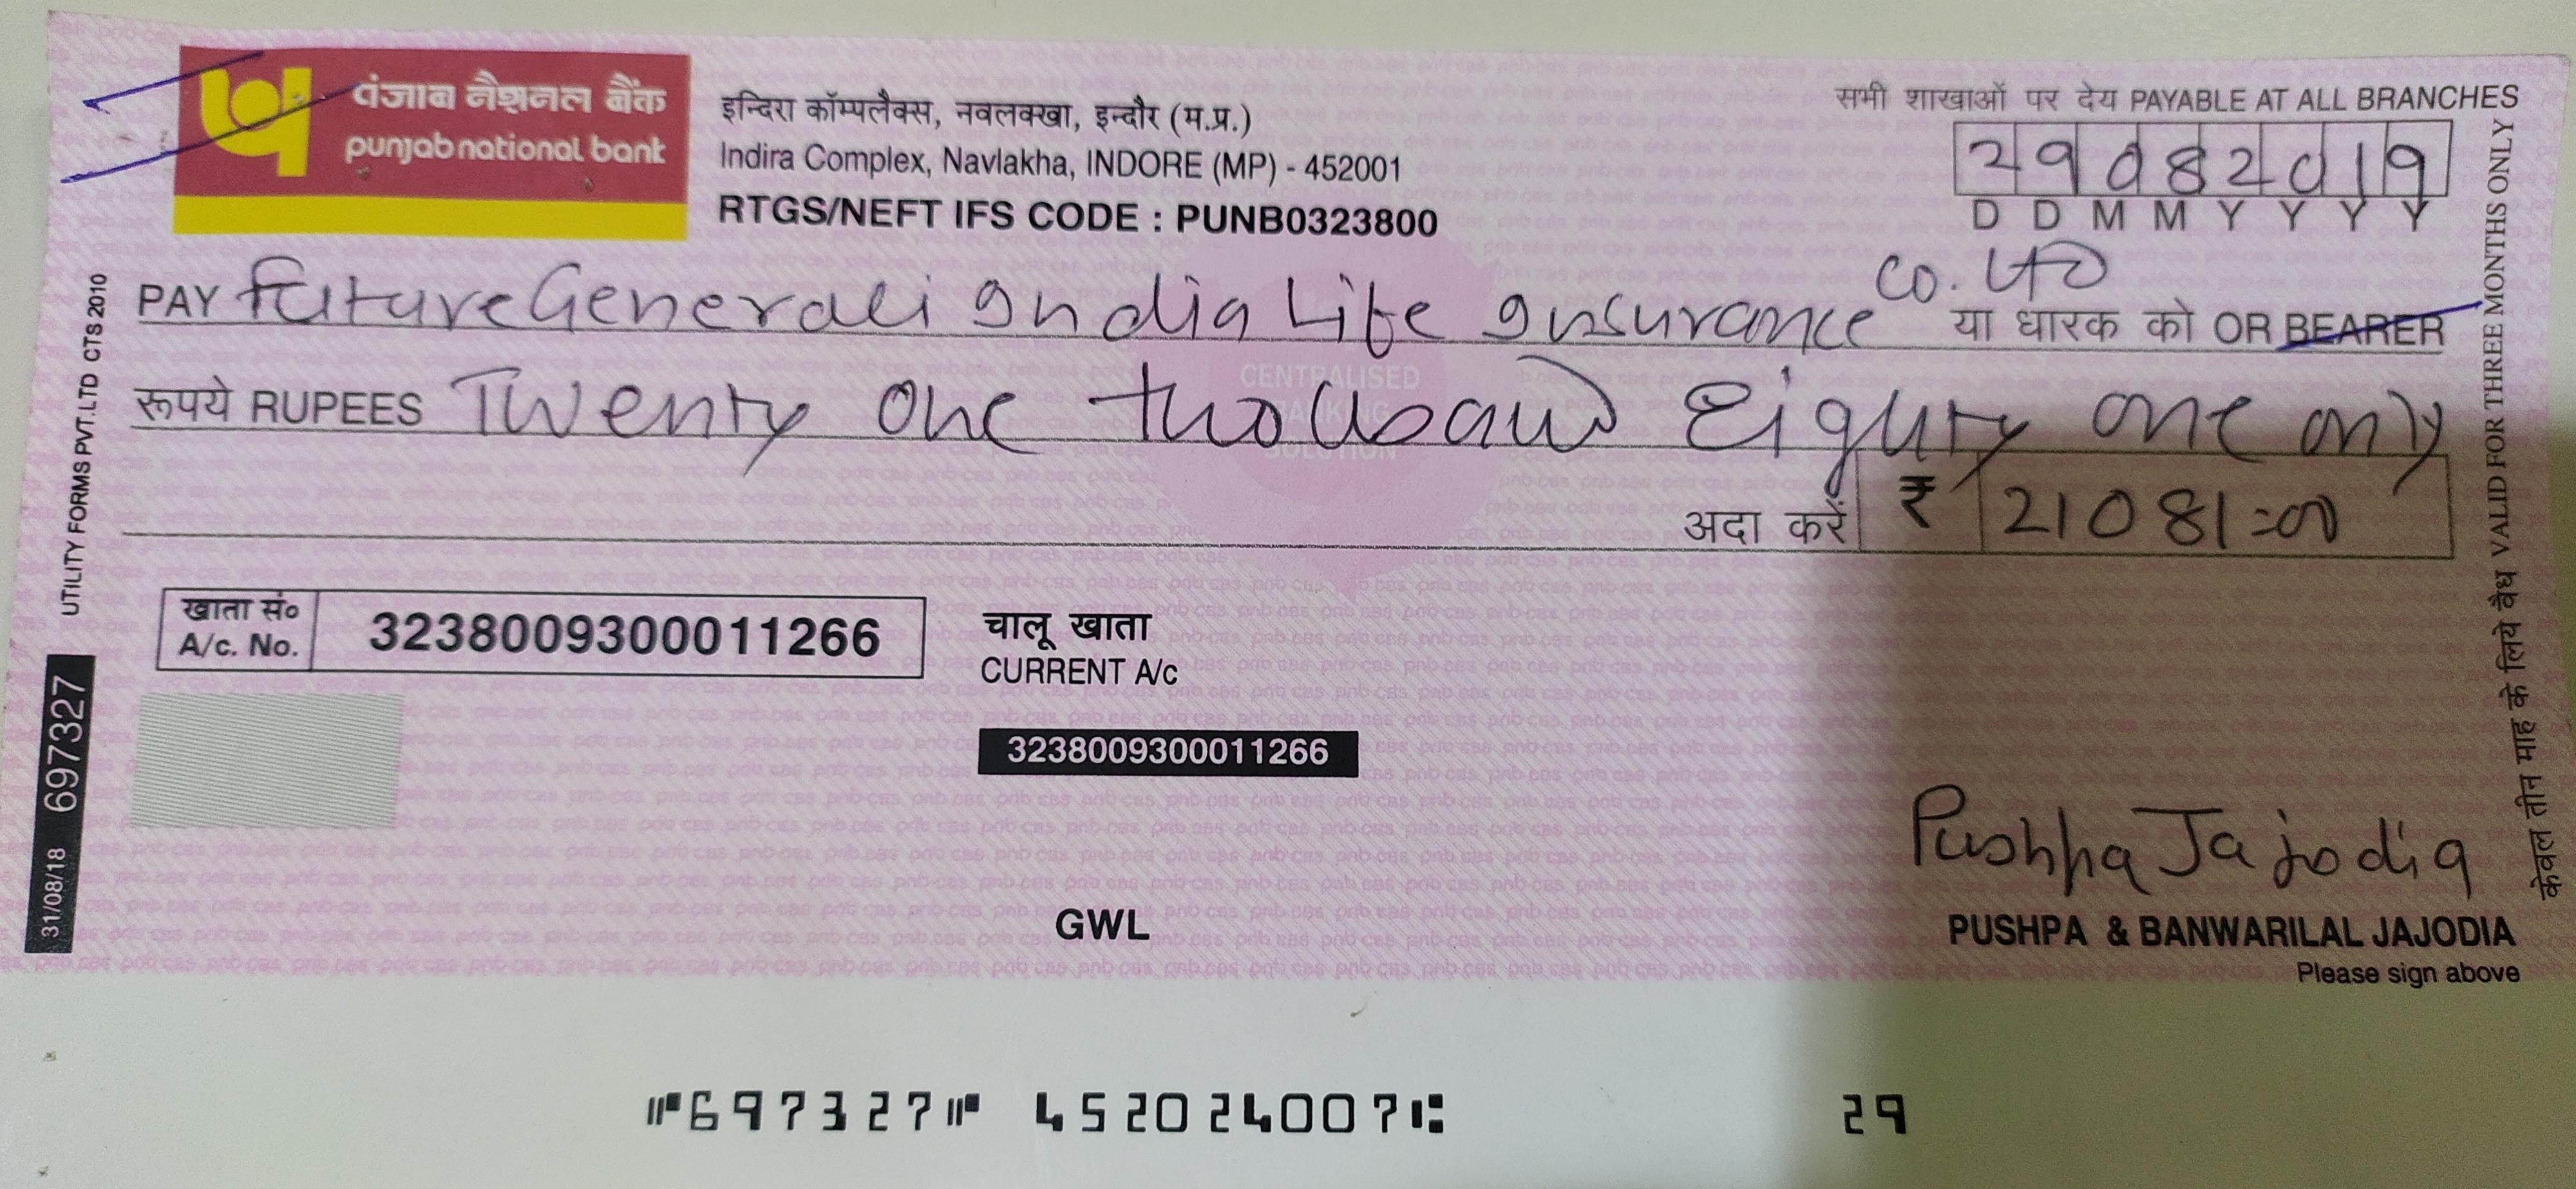 पंजाब नैशनल बैंक
punjab national bank
इन्दिरा कॉम्पलैक्स, नवलक्खा, इन्दौर (म.प्र.)
Indira Complex, Navlakha, INDORE (MP) - 452001
RTGS/NEFT IFS CODE : PUNB0323800
सभी शाखाओं पर देय PAYABLE AT ALL BRANCHES
29082019
D D M M Y Y Y Y
Co. Ltd
PAY Future Generali India Life Insurance या धारक को OR BEARER
रूपये RUPEES Twenty one thousand Eighty one only
CENTRALISED
BANKING
SOLUTION
अदा करें ₹ 21081=00
खाता सं०
A/c. No. 3238009300011266
चालू खाता
CURRENT A/c
3238009300011266
Pushpa Jajodia
GWL
PUSHPA & BANWARILAL JAJODIA
Please sign above
UTILITY FORMS PVT.LTD CTS 2010
31/08/18 697327
केवल तीन माह के लिये वैध VALID FOR THREE MONTHS ONLY
⑈697327⑈ 452024007⑆ 29